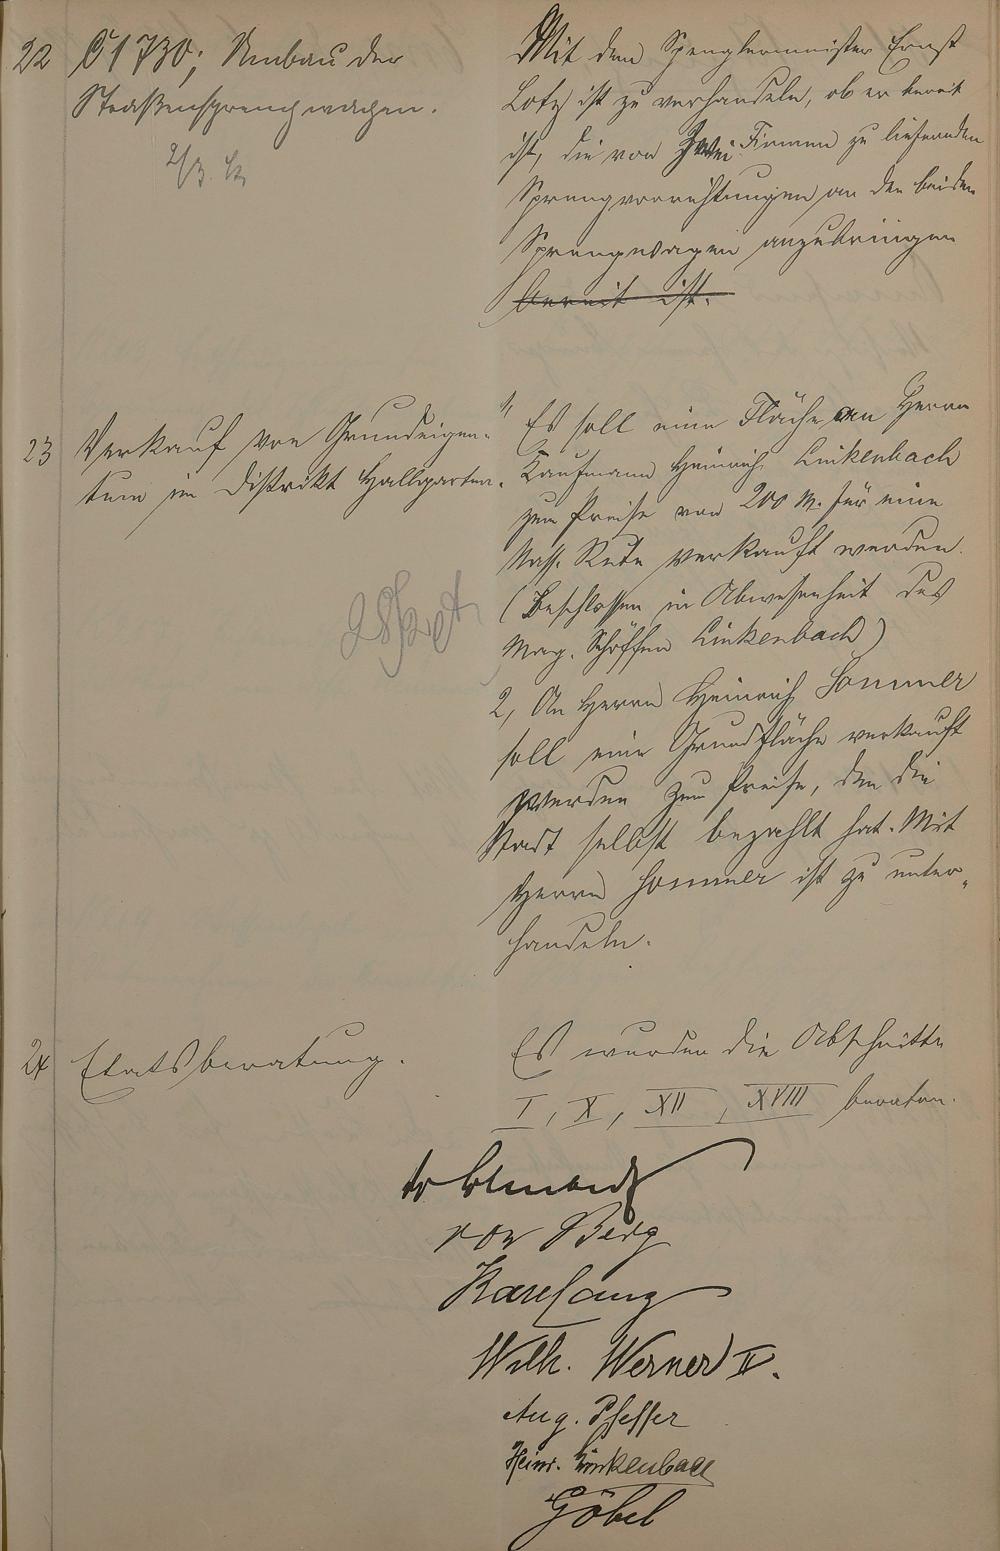 22
C 1730; Umbau der
Straßensprengwagen.
Mit dem Spenglermeister Ernst
Lotz ist zu verhandeln, ob er bereit
ist, die von zwei Firmen zu liefernden
Sprengvorrichtungen an den beiden
Sprengwagen anzubringen
bereit ist.
23
Verkauf von Grundeigen-
tum im Distrikt Hallgarten.
1, Es soll eine Fläche an Herrn
Kaufmann Heinrich Linkenbach
zum Preise von 200 M. für eine
Nass. Rute verkauft werden.
(Beschlossen in Abwesenheit des
Mag. Schöffen Linkenbach)
2, An Herrn Heinrich Sommer
soll eine Grundfläche verkauft
werden zum Preise, den die
Stadt selbst bezahlt hat. Mit
Herrn Sommer ist zu unter-
handeln.
24
Etatsberatung.
Es wurden die Abschnitte
I, X, XII, XVIII beraten.
von Berg
Karl Lang
Wilh. Werner II.
Aug. Pfeffer
Heinr. Linkenbach
Göbel